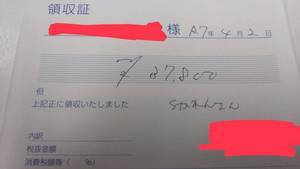 領収証
様 R7年4月2日
¥87,800
但
上記正に領収いたしました
内訳
税抜金額
消費税額等( %)